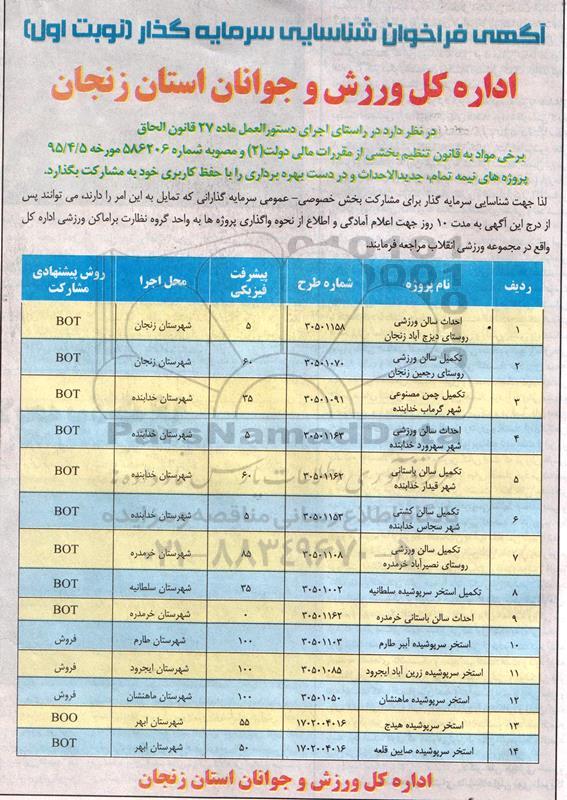 آگهی فراخوان شناسایی سرمایه گذار (نوبت اول)
اداره کل ورزش و جوانان استان زنجان
در نظر دارد در راستای اجرای دستورالعمل ماده ۲۷ قانون الحاق
برخی مواد به قانون تنظیم بخشی از مقررات مالی دولت(۲) و مصوبه شماره ۵۸۶۲۰۶ مورخه ۹۵/۴/۵
پروژه های نیمه تمام، جدیدالاحداث و در دست بهره برداری را با حفظ کاربری خود به مشارکت بگذارد.
لذا جهت شناسایی سرمایه گذار برای مشارکت بخش خصوصی- عمومی سرمایه گذارانی که تمایل به این امر را دارند، می توانند پس
از درج این آگهی به مدت ۱۰ روز جهت اعلام آمادگی و اطلاع از نحوه واگذاری پروژه ها به واحد گروه نظارت براماکن ورزشی اداره کل
واقع در مجموعه ورزشی انقلاب مراجعه فرمایند.
ردیف نام پروژه شماره طرح پیشرفت فیزیکی محل اجرا روش پیشنهادی مشارکت
۱ احداث سالن ورزشی روستای دیزج آباد زنجان ۳۰۵۰۱۱۵۸ ۵ شهرستان زنجان BOT
۲ تکمیل سالن ورزشی روستای رجعین زنجان ۳۰۵۰۱۰۷۰ ۶۰ شهرستان زنجان BOT
۳ تکمیل چمن مصنوعی شهر گرماب خدابنده ۳۰۵۰۱۰۹۱ ۳۵ شهرستان خدابنده BOT
۴ احداث سالن ورزشی شهر سهرورد خدابنده ۳۰۵۰۱۱۶۳ ۵ شهرستان خدابنده BOT
۵ تکمیل سالن باستانی شهر قیدار خدابنده ۳۰۵۰۱۱۶۲ ۶۰ شهرستان خدابنده BOT
۶ تکمیل سالن کشتی شهر سجاس خدابنده ۳۰۵۰۱۱۵۳ ۵ شهرستان خدابنده BOT
۷ تکمیل سالن ورزشی روستای نصیرآباد خرمدره ۳۰۵۰۱۱۰۸ ۸۵ شهرستان خرمدره BOT
۸ تکمیل استخر سرپوشیده سلطانیه ۳۰۵۰۱۰۰۲ ۳۵ شهرستان سلطانیه BOT
۹ احداث سالن باستانی خرمدره ۳۰۵۰۱۱۶۲ ۰ شهرستان خرمدره BOT
۱۰ استخر سرپوشیده آببر طارم ۳۰۵۰۱۱۰۳ ۱۰۰ شهرستان طارم فروش
۱۱ استخر سرپوشیده زرین آباد ایجرود ۳۰۵۰۱۰۸۵ ۱۰۰ شهرستان ایجرود فروش
۱۲ استخر سرپوشیده ماهنشان ۳۰۵۰۱۰۵۰ ۱۰۰ شهرستان ماهنشان فروش
۱۳ استخر سرپوشیده هیدج ۱۷۰۲۰۰۴۰۱۶ ۵۵ شهرستان ابهر BOO
۱۴ استخر سرپوشیده صایین قلعه ۱۷۰۲۰۰۴۰۱۶ ۵۰ شهرستان ابهر BOT
اداره کل ورزش و جوانان استان زنجان
۰۲۱-۸۸۳۴۹۶۷۰-۵